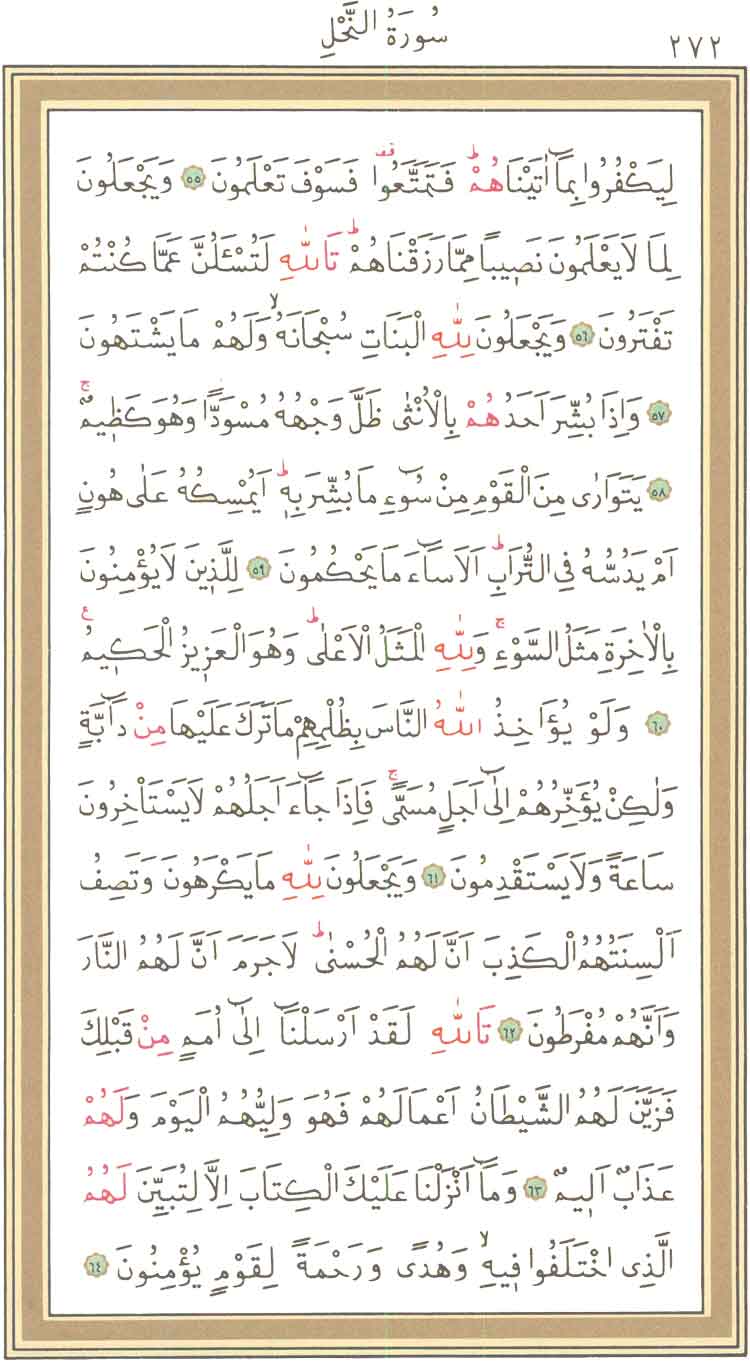 سُورَةُ النَّحْلِ ٢٧٢
لِيَكْفُرُوا بِمَٓا اٰتَيْنَاهُمْۜ فَتَمَتَّعُوا۠ فَسَوْفَ تَعْلَمُونَ ﴿٥٥﴾ وَيَجْعَلُونَ
لِمَا لَا يَعْلَمُونَ نَصٖيباً مِمَّا رَزَقْنَاهُمْؕ تَاللّٰهِ لَتُسْـَٔلُنَّ عَمَّا كُنْتُمْ
تَفْتَرُونَ ﴿٥٦﴾ وَيَجْعَلُونَ لِلّٰهِ الْبَنَاتِ سُبْحَانَهُۙ وَلَهُمْ مَا يَشْتَهُونَ
﴿٥٧﴾ وَاِذَا بُشِّرَ اَحَدُهُمْ بِالْاُنْثٰى ظَلَّ وَجْهُهُ مُسْوَداًّ وَهُوَ كَظٖيمٌۚ
﴿٥٨﴾ يَتَوَارٰى مِنَ الْقَوْمِ مِنْ سُٓوءِ مَا بُشِّرَ بِهٖؕ اَيُمْسِكُهُ عَلٰى هُونٍ
اَمْ يَدُسُّهُ فِي التُّرَابِؕ اَلَا سَٓاءَ مَا يَحْكُمُونَ ﴿٥٩﴾ لِلَّذٖينَ لَا يُؤْمِنُونَ
بِالْاٰخِرَةِ مَثَلُ السَّوْءِۚ وَلِلّٰهِ الْمَثَلُ الْاَعْلٰىؕ وَهُوَ الْعَزٖيزُ الْحَكٖيمُ ع
﴿٦٠﴾ وَلَوْ يُؤَاخِذُ اللّٰهُ النَّاسَ بِظُلْمِهِمْ مَا تَرَكَ عَلَيْهَا مِنْ دَٓابَّةٍ
وَلٰكِنْ يُؤَخِّرُهُمْ اِلٰٓى اَجَلٍ مُسَمًّىۚ فَاِذَا جَٓاءَ اَجَلُهُمْ لَا يَسْتَأْخِرُونَ
سَاعَةً وَلَا يَسْتَقْدِمُونَ ﴿٦١﴾ وَيَجْعَلُونَ لِلّٰهِ مَا يَكْرَهُونَ وَتَصِفُ
اَلْسِنَتُهُمُ الْكَذِبَ اَنَّ لَهُمُ الْحُسْنٰىؕ لَا جَرَمَ اَنَّ لَهُمُ النَّارَ
وَاَنَّهُمْ مُفْرَطُونَ ﴿٦٢﴾ تَاللّٰهِ لَقَدْ اَرْسَلْنَٓا اِلٰٓى اُمَمٍ مِنْ قَبْلِكَ
فَزَيَّنَ لَهُمُ الشَّيْطَانُ اَعْمَالَهُمْ فَهُوَ وَلِيُّهُمُ الْيَوْمَ وَلَهُمْ
عَذَابٌ اَلٖيمٌ ﴿٦٣﴾ وَمَٓا اَنْزَلْنَا عَلَيْكَ الْكِتَابَ اِلَّا لِتُبَيِّنَ لَهُمُ
الَّذِي اخْتَلَفُوا فٖيهِۙ وَهُدًى وَرَحْمَةً لِقَوْمٍ يُؤْمِنُونَ ﴿٦٤﴾